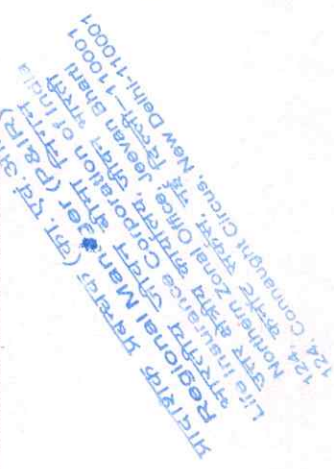 प्रादेशिक प्रबन्धक (का. एवं औ.
Regional Manager (P&IR)
भारतीय जीवन बीमा निगम
Life Insurance Corporation of India
उत्तर क्षेत्रीय कार्यालय, जीवन भारती
Northern Zonal Office, Jeevan Bharti
124, कनाट सर्कस, नई दिल्ली-110001
124, Connaught Circus, New Delhi-110001